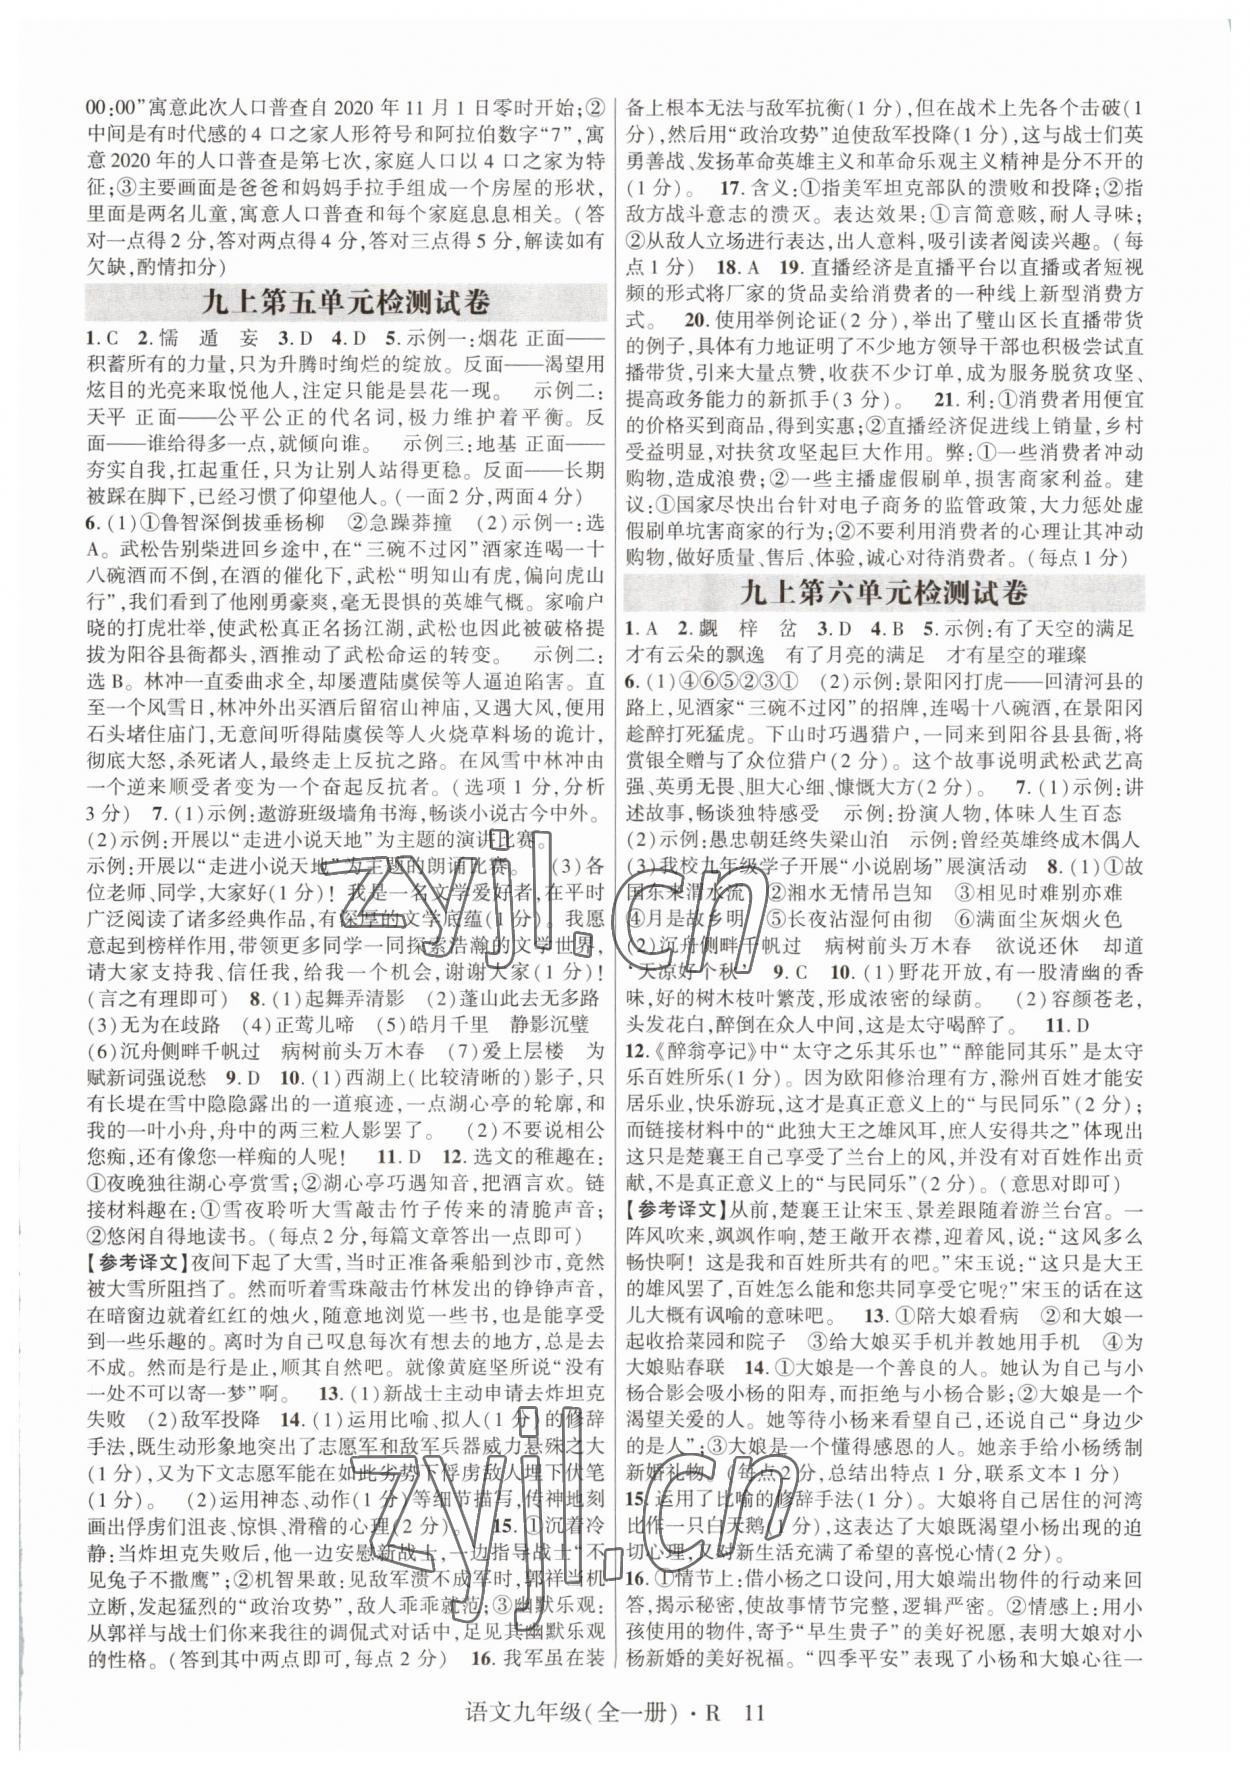 00:00”寓意此次人口普查自 2020 年 11 月 1 日零时开始;②
中间是有时代感的 4 口之家人形符号和阿拉伯数字“7”,寓
意 2020 年的人口普查是第七次,家庭人口以 4 口之家为特
征;③主要画面是爸爸和妈妈手拉手组成一个房屋的形状,
里面是两名儿童,寓意人口普查和每个家庭息息相关。(答
对一点得 2 分,答对两点得 4 分,答对三点得 5 分,解读如有
欠缺,酌情扣分)
九上第五单元检测试卷
1. C 2. 懦 遁 妄 3. D 4. D 5. 示例一:烟花 正面——
积蓄所有的力量,只为升腾时绚烂的绽放。反面——渴望用
炫目的光亮来取悦他人,注定只能是昙花一现。 示例二:
天平 正面——公平公正的代名词,极力维护着平衡。反
面——谁给得多一点,就倾向谁。 示例三:地基 正面——
夯实自我,扛起重任,只为让别人站得更稳。反面——长期
被踩在脚下,已经习惯了仰望他人。(一面 2 分,两面 4 分)
6. (1)①鲁智深倒拔垂杨柳 ②急躁莽撞 (2)示例一:选
A。武松告别柴进回乡途中,在“三碗不过冈”酒家连喝一十
八碗酒而不倒,在酒的催化下,武松“明知山有虎,偏向虎山
行”,我们看到了他刚勇豪爽,毫无畏惧的英雄气概。家喻户
晓的打虎壮举,使武松真正名扬江湖,武松也因此被破格提
拔为阳谷县衙都头,酒推动了武松命运的转变。 示例二:
选 B。林冲一直委曲求全,却屡遭陆虞侯等人逼迫陷害。直
至一个风雪日,林冲外出买酒后留宿山神庙,又因风大,便用
石头堵住庙门,无意间听得陆虞侯等人火烧草料场的诡计,
彻底大怒,杀死诸人,最终走上反抗之路。在风雪中林冲由
一个逆来顺受者变为一个奋起反抗者。(选项 1 分,分析
3 分) 7. (1)示例:遨游班级墙角书海,畅谈小说古今中外。
(2)示例:开展以“走进小说天地”为主题的演讲比赛。
示例:开展以“走进小说天地”为主题的朗诵比赛。 (3)各
位老师、同学,大家好(1 分)! 我是一名文学爱好者,在平时
广泛阅读了诸多经典作品,有深厚的文学底蕴(1 分)。我愿
意起到榜样作用,带领同学一同探索浩瀚的文学世界,
请大家支持我、信任我,给我一个机会,谢谢大家(1 分)!
(言之有理即可) 8. (1)起舞弄清影 (2)蓬山此去无多路
(3)无为在歧路 (4)正莺儿啼 (5)皓月千里 静影沉璧
(6)沉舟侧畔千帆过 病树前头万木春 (7)爱上层楼 为
赋新词强说愁 9. D 10. (1)西湖上(比较清晰的)影子,只
有长堤在雪中隐隐露出的一道痕迹,一点湖心亭的轮廓,和
我的一叶小舟,舟中的两三粒人影罢了。 (2)不要说相公
您痴,还有像您一样痴的人呢! 11. D 12. 选文的雅趣在:
①夜晚独往湖心亭赏雪;②湖心亭巧遇知音,把酒言欢。链
接材料趣在:①雪夜聆听大雪敲击竹子传来的清脆声音;
②悠闲自得地读书。(每点 2 分,每篇文章答出一点即可)
【参考译文】夜间下起了大雪,当时正准备乘船到沙市,竟然
被大雪所阻挡了。然而听着雪珠敲击竹林发出的铮铮声音,
在暗窗边就着红红的烛火,随意地浏览一些书,也是能享受
到一些乐趣的。离时为自己叹息每次有想去的地方,总是去
不成。然而是行是止,顺其自然吧。就像黄庭坚所说“没有
一处不可以寄一梦”啊。 13. (1)新战士主动申请去炸坦克
失败 (2)敌军投降 14. (1)运用比喻、拟人(1 分)的修辞
手法,既生动形象地突出了志愿军和敌军兵器威力悬殊之大
(1 分),又为下文志愿军能在如此劣势下俘虏敌人埋下伏笔
(1 分)。 (2)运用神态、动作(1 分)等细节描写,传神地刻
画出俘虏们沮丧、惊惧、滑稽的心理(2 分)。 15. ①沉着冷
静:当炸坦克失败后,他一边安慰新战士,一边指导战士“不
见兔子不撒鹰”;②机智果敢:见活塞不成军时,郭祥当机
立断,发起猛烈的“政治攻势”,敌人乖乖就范;③幽默乐观:
从郭祥与战士们你来我往的调侃式对话中,足见其幽默乐观
的性格。(答到其中两点即可,每点 2 分) 16. 我军虽在装
备上根本无法与敌军抗衡(1 分),但在战术上先各个击破(1
分),然后用“政治攻势”迫使敌军投降(1 分),这与战士们英
勇善战、发扬革命英雄主义和革命乐观主义精神是分不开的
(1 分)。 17. 含义:①指美军坦克部队的溃败和投降;②指
敌方战斗意志的溃灭。表达效果:①言简意赅,耐人寻味;
②从敌人立场进行表达,出人意料,吸引读者阅读兴趣。(每
点 1 分) 18. A 19. 直播经济是直播平台以直播或者短视
频的形式将厂家的货品卖给消费者的一种线上新型消费方
式。 20. 使用举例论证(2 分),举出了璧山区长直播带货
的例子,具体有力地证明了不少地方领导干部也积极尝试直
播带货,引来大量点赞,收获不少订单,成为服务脱贫攻坚、
提高政务能力的新抓手(3 分)。 21. 利:①消费者用便宜
的价格买到商品,得到实惠;②直播经济促进线上销量,乡村
受益明显,对扶贫攻坚起巨大作用。弊:①一些消费者冲动
购物,造成浪费;②一些主播虚假刷单,损害商家利益。建
议:①国家尽快出台针对电子商务的监管政策,大力惩处虚
假刷单坑害商家的行为;②不要利用消费者的心理让其冲动
购物,做好质量、售后、体验,诚心对待消费者。(每点 1 分)
九上第六单元检测试卷
1. A 2. 觑 梓 岔 3. D 4. B 5. 示例:有了天空的满足
才有云朵的飘逸 有了月亮的满足 才有星空的璀璨
6. (1)④⑥⑤②③① (2)示例:景阳冈打虎——回清河县的
路上,见酒家“三碗不过冈”的招牌,连喝十八碗酒,在景阳冈
趁醉打死猛虎。下山时巧遇猎户,一同来到阳谷县县衙,将
赏银全赠与了猎户(2 分)。这个故事说明武松武艺高
强、英勇无畏、胆大心细、慷慨大方(2 分)。 7. (1)示例:讲
述故事,畅谈独特感受 示例:扮演人物,体味人生百态
(2)示例:愚忠朝廷终失梁山泊 示例:曾经英雄终成木偶人
(3)我校九年级学子开展“小说剧场”展演活动 8. (1)①故
国东来渭水流 ②湘水无情吊岂知 ③相见时难别亦难
④月是故乡明 ⑤长夜沾湿何由彻 ⑥满面尘灰烟火色
(2)沉舟侧畔千帆过 病树前头万木春 欲说还休 却道
天凉好个秋 9. C 10. (1)野花开放,有一股清幽的香
味,好的树木枝叶繁茂,形成浓密的绿荫。 (2)容颜苍老,
头发花白,醉倒在众人中间,这是太守喝醉了。 11. D
12.《醉翁亭记》中“太守之乐其乐也”“醉能同其乐”是太守
乐百姓所乐(1 分)。因为欧阳修治理有方,滁州百姓才能安
居乐业,快乐游玩,这才是真正意义上的“与民同乐”(2 分);
而链接材料中的“此独大王之雄风耳,庶人安得共之”体现出
这只是楚襄王自己享受了兰台上的风,并没有对百姓作出贡
献,不是真正意义上的“与民同乐”(2 分)。(意思对即可)
【参考译文】从前,楚襄王让宋玉、景差跟随着游兰台宫。一
阵风吹来,飒飒作响,楚王敞开衣襟,迎着风,说:“这风多么
畅快啊! 这是我和百姓共有的吧。”宋玉说:“这只是大王
的雄风罢了,百姓怎么能和您共同享受它呢?”宋玉的话在这
儿大概有讽喻的意味吧。 13. ①陪大娘看病 ②和大娘一
起收拾菜园和院子 ③给大娘买手机并教她用手机 ④为
大娘贴春联 14. ①大娘是一个善良的人。她认为自己与小
杨合影会影响小杨的阳寿,而拒绝与小杨合影;②大娘是一个
渴望关爱的人。她等待小杨来看望自己,还说自己“身边少
的是人”;③大娘是一个懂得感恩的人。她亲手给小杨绣制
新婚礼物。(每点 2 分,总结出特点 1 分,联系文本 1 分)
15. 运用了比喻的修辞手法(1 分)。大娘将自己居住的河湾
比作一只白天鹅(1 分),写出了大娘既渴望小杨出现的迫
切心理,又对新生活充满了希望的喜悦心情(2 分)。
16. ①情节上:借小杨之口设问,用大娘端出物件的行动来回
答,揭示秘密,使故事情节完整,逻辑严密。②情感上:用小
孩使用的物件,寄予“早生贵子”的美好祝愿,表现了大娘对小
杨新婚的美好祝福。“四季平安”表现了小杨和大娘心往一
语文九年级(全一册)·R 11
zyjl.cn
zyjl.cn